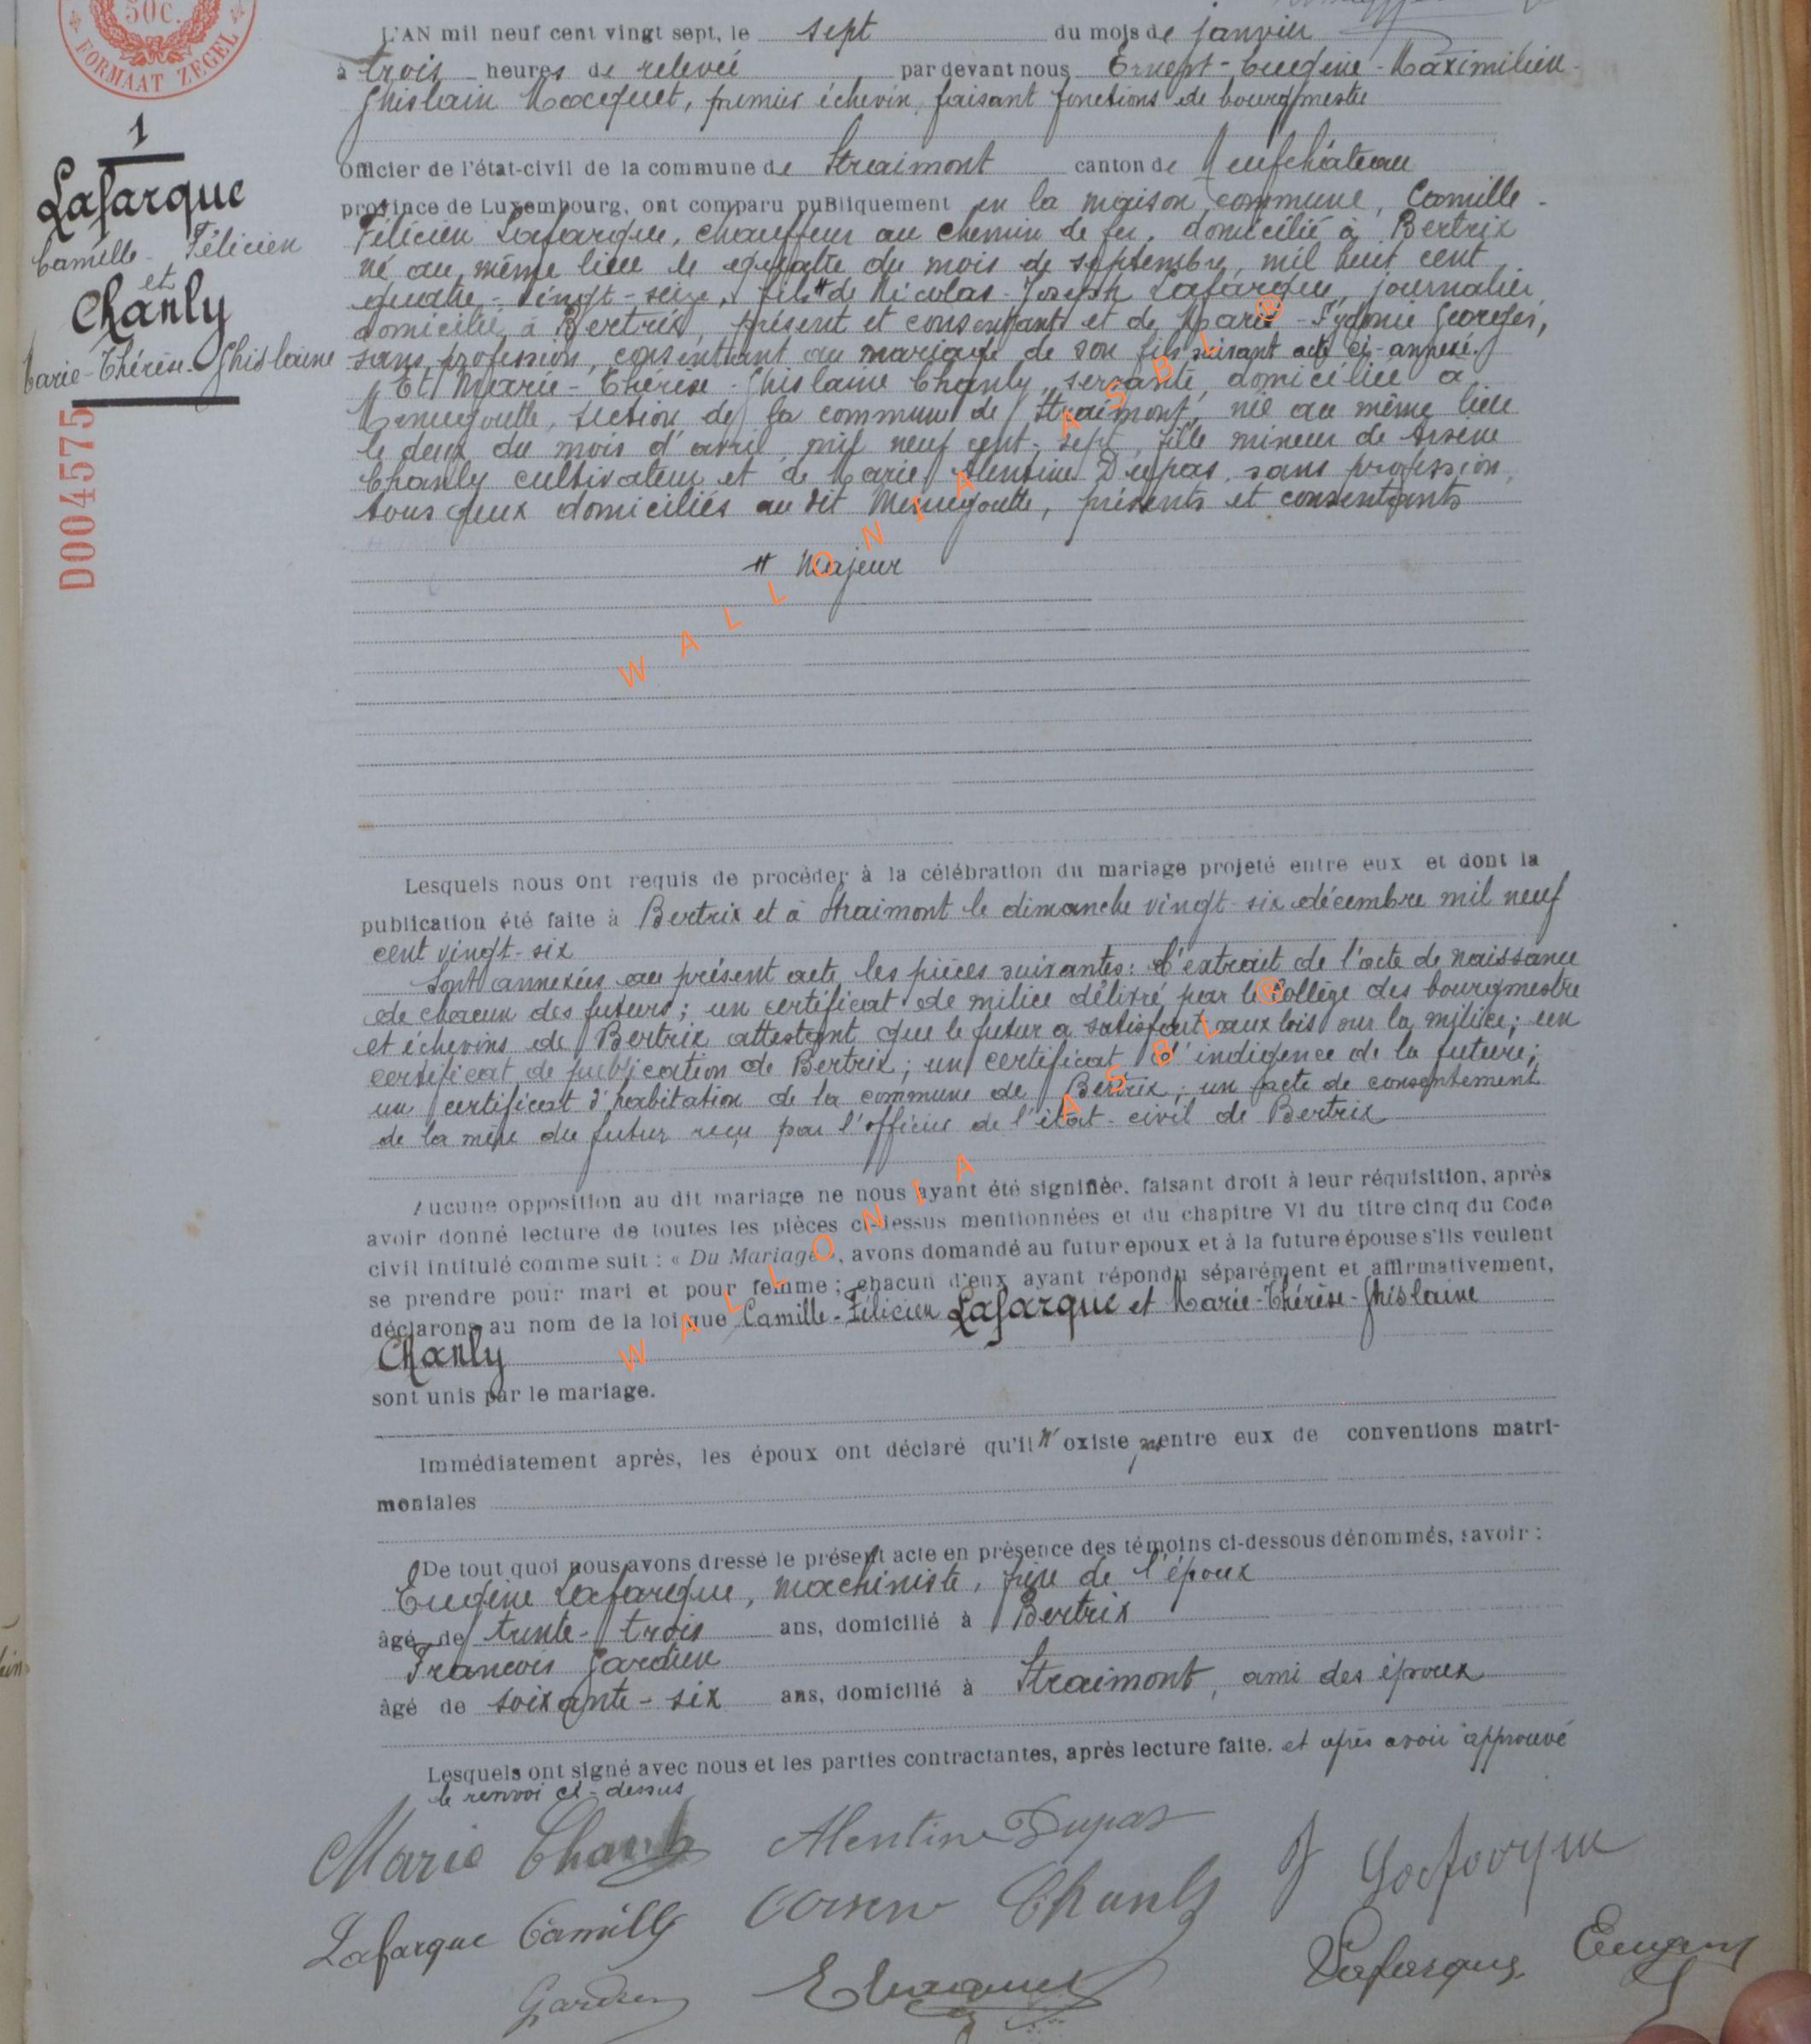 50c.
FORMAAT ZEGEL
1
Lafarque
Camille-Félicien
et
Chanly
Marie-Thérèse-Ghislaine
D004575
L'AN mil neuf cent vingt sept, le sept du mois de janvier
à trois heures de relevée par devant nous Ernest-Eugène-Maximilien-
Ghislain Macquet, premier échevin, faisant fonctions de bourgmestre
Officier de l'état-civil de la commune de Straimont canton de Neufchâteau
province de Luxembourg, ont comparu publiquement en la maison commune, Camille-
Félicien Lafarque, chauffeur au chemin de fer, domicilié à Bertrix
né au même lieu le quatre du mois de septembre, mil huit cent
quatre-vingt-seize, fils # de Nicolas-Joseph Lafarque, journalier,
domicilié à Bertrix, présent et consentant et de Marie-Sydonie Georges,
sans profession, consentant au mariage de son fils suivant acte ci-annexé.
Et Marie-Thérèse-Ghislaine Chanly, servante, domiciliée à
Menugoutte, section de la commune de Straimont, née au même lieu
le deux du mois d'avril mil neuf cent-sept, fille mineur de Arsène
Chanly cultivateur et de Marie Alentine Dupas, sans profession,
tous deux domiciliés au dit Menugoutte, présents et consentants
# Majeur
Lesquels nous ont requis de procéder à la célébration du mariage projeté entre eux et dont la
publication été faite à Bertrix et à Straimont le dimanche vingt-six décembre mil neuf
cent vingt-six
Sont annexées au présent acte les pièces suivantes: L'extrait de l'acte de naissance
de chacun des futurs; un certificat de milice délivré par le collège des bourgmestre
et échevins de Bertrix attestant que le futur a satisfait aux lois sur la milice; un
certificat de publication de Bertrix; un certificat d'indigence de la future;
un certificat d'habitation de la commune de Bertrix; un acte de consentement
de la mère du futur reçu par l'officier de l'état-civil de Bertrix
Aucune opposition au dit mariage ne nous ayant été signifiée, faisant droit à leur réquisition, après
avoir donné lecture de toutes les pièces ci-dessus mentionnées et du chapitre VI du titre cinq du Code
civil intitulé comme suit : « Du Mariage », avons domandé au futur époux et à la future épouse s'ils veulent
se prendre pour mari et pour femme; chacun d'eux ayant répondu séparément et affirmativement,
déclarons au nom de la loi que Camille-Félicien Lafarque et Marie-Thérèse-Ghislaine
Chanly
sont unis par le mariage.
Immédiatement après, les époux ont déclaré qu'il n'existe pas entre eux de conventions matri-
moniales
De tout quoi nous avons dressé le présent acte en présence des témoins ci-dessous dénommés, savoir :
Eugène Lafarque, machiniste, frère de l'époux
âgé de trente-trois ans, domicilié à Bertrix
François Gardien
âgé de soixante-six ans, domicilié à Straimont, ami des époux
Lesquels ont signé avec nous et les parties contractantes, après lecture faite. et après avoir approuvé
le renvoi ci-dessus
Marie Chanly Alentine Dupas
Lafarque Camille Arsène Chanly
Lafarque Eugène
Gardien
WALLONIA ASBL ®
WALLONIA ASBL ®